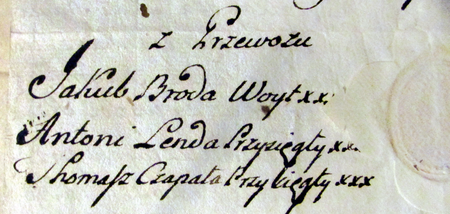 z Przewozu
Jakub Broda Woyt xx
Antoni Lenda Przysięgły xxx
Thomasz Czapata Przysięgły xxx